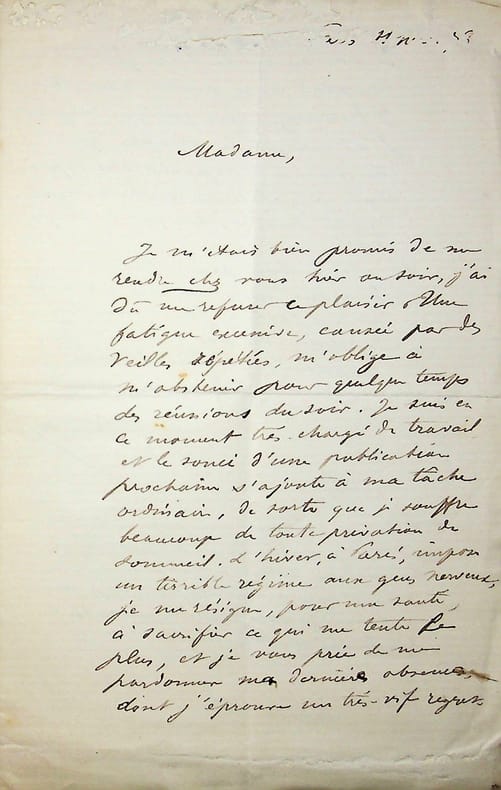 Madame,
Je m'étais bien promis de me
rendre chez vous hier au soir, j'ai
dû me refuser ce plaisir. Une
fatigue excessive, causée par des
veilles répétées, m'oblige à
m'abstenir pour quelque temps
des réunions du soir. Je suis en
ce moment très-chargé de travail
et le souci d'une publication
prochaine s'ajoute à ma tâche
ordinaire, de sorte que je souffre
beaucoup de toute privation de
sommeil. L'hiver, à Paris, impose
un terrible régime aux gens nerveux,
je me résigne, pour ma santé,
à sacrifier ce qui me tente le
plus, et je vous prie de me
pardonner ma dernière absence,
dont j'éprouve un très-vif regret.